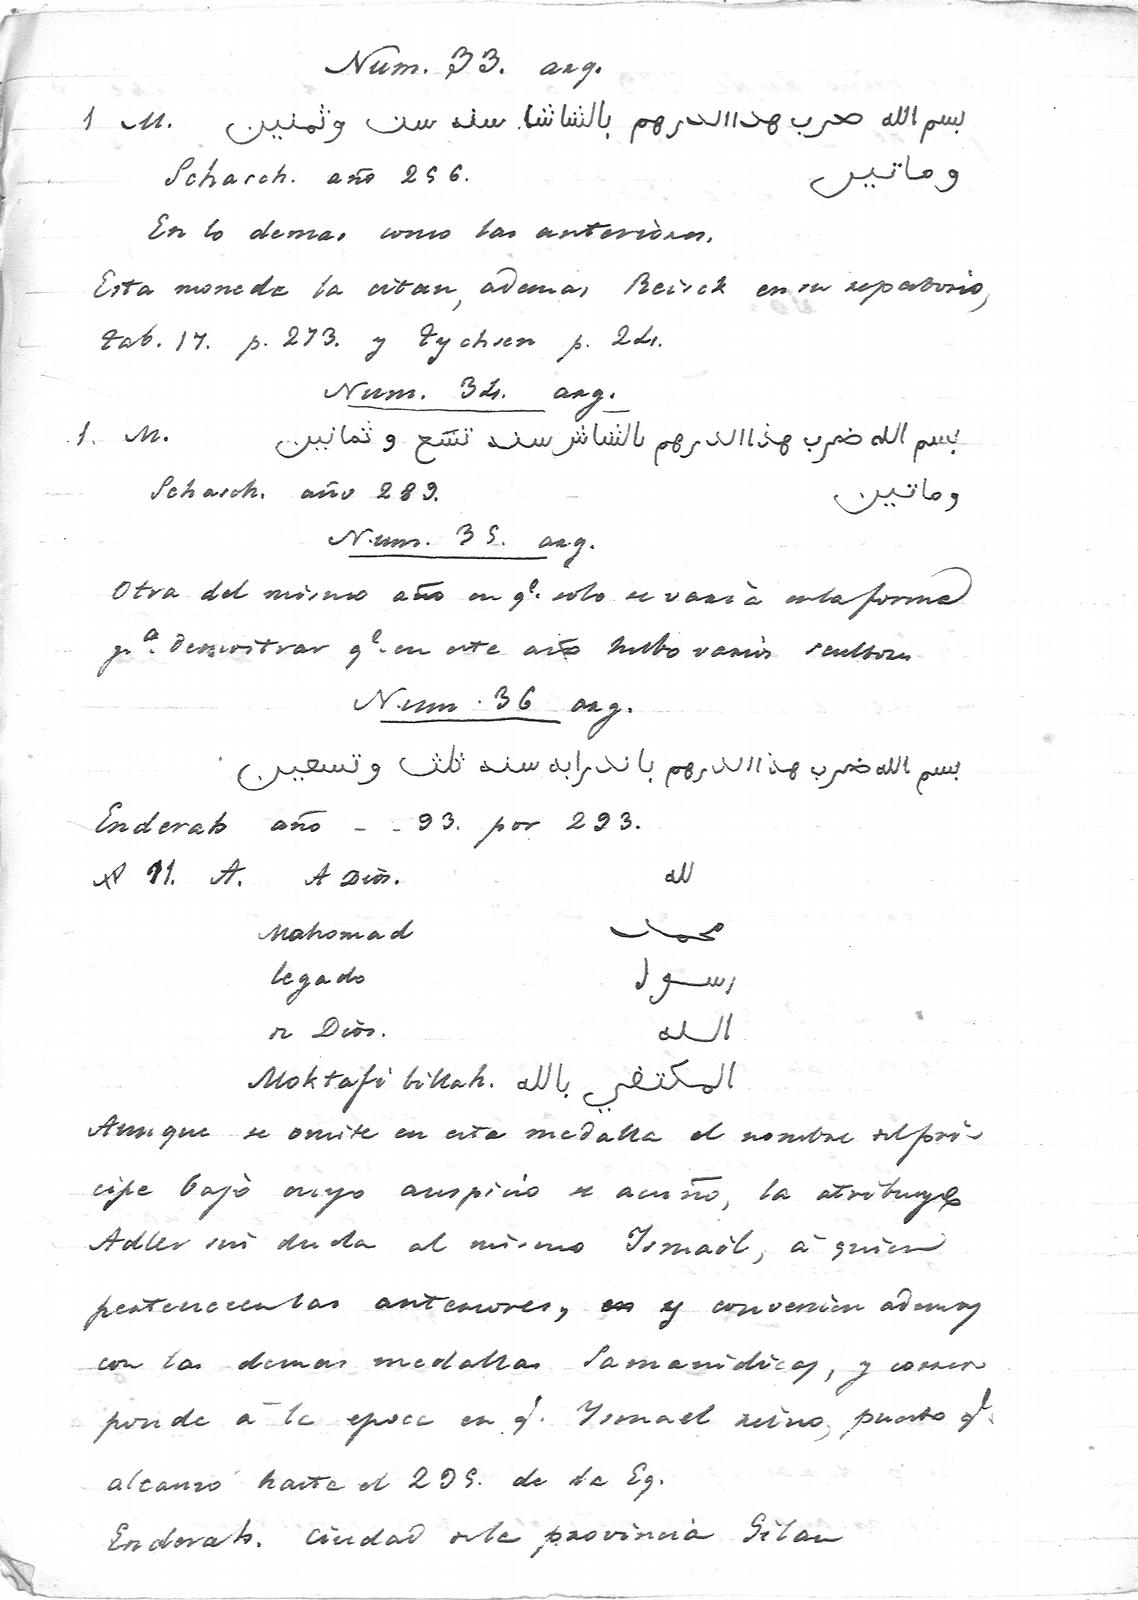 Num. 33. arg.
1 M. بسم الله ضرب هذا الدرهم بالشاش سنه ست وثمنين
Schasch. año 286. وماتين
En lo demas como las anteriores.
Esta moneda la citan, ademas Reisck en su repertorio,
tab. 17. p. 273. y Tychsen p. 24.
Num. 34. arg.
1. M. بسم الله ضرب هذا الدرهم بالشاش سنه تسع وثمانين
Schasch. año 289. وماتين
Num. 35. arg.
Otra del mismo año en qe. solo se varia en la forma
pa. demostrar qe. en este año hubo varios scultores
Num. 36 arg.
بسم الله ضرب هذا الدرهم باندرابه سنه ثلث وتسعين
Enderab año - - 93. por 293.
A II. A. A Dios. لله
Mahomad محمد
legado رسول
de Dios. الله
Moktafi billah. المكتفي بالله
Aunque se omite en esta medalla el nombre del prin-
cipe bajo cuyo auspicio se acuño, la atribuye
Adler sin duda al mismo Ismaël, á quien
pertenecen las anteriores, y convenien ademas
con las demas medallas Samanidicas, y corres
ponde á la epoca en qe. Ysmael reino, puesto qe.
alcanzó hasta el 295. de la Eg.
Enderab. Ciudad de la provincia Gilan